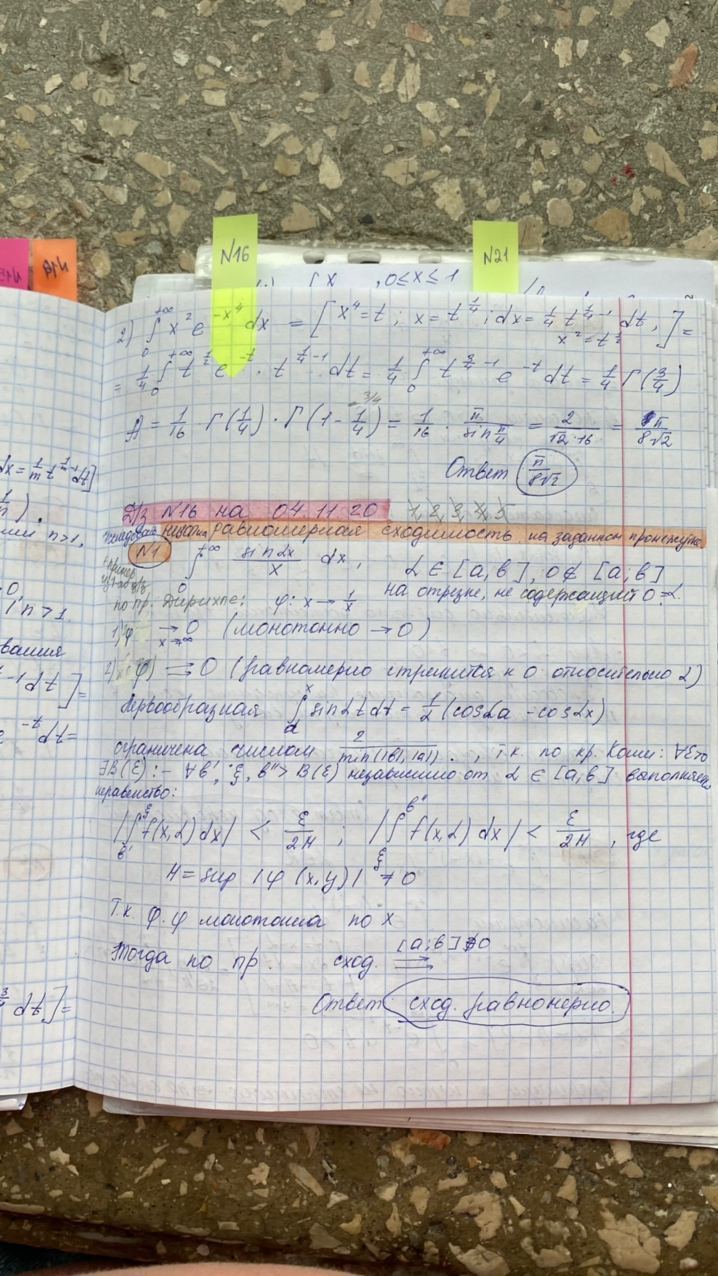 N16
N21
0≤x≤1
2) ∫₀^{+∞} x² e^{-x⁴} dx = [x⁴=t; x=t^{1/4}; dx=1/4 t^{1/4-1} dt, x²=t^{1/2}] =
= 1/4 ∫₀^{+∞} t^{1/2} e^{-t} · t^{1/4-1} dt = 1/4 ∫₀^{+∞} t^{3/4-1} e^{-t} dt = 1/4 Γ(3/4)
A = 1/16 · Γ(1/4) · Γ(1-1/4) = 1/16 · π/(sin π/4) = 2/(√2·16) = π/(8√2)
3/4
Ответ π/(8√2)
Д/з N16 на 04.11.20 1, 2, 3, 4, 5
равномерная сходимость на заданном промежутке
N1 ∫₀^{+∞} (sin αx)/x dx, α ∈ [a,b], 0∉ [a;b]
на отрезке, не содержащий 0=α
по пр. Дирихле: φ: x → 1/x
1) φ → 0 (монотонно → 0)
x→∞
⇉ 0 (равномерно стремится к 0 относительно α)
Первообразная ∫ₐˣ sin αt dt = 1/α (cos αa - cos αx)
ограничена числом 2/min(|b|,|a|), т.к. по кр. Коши: ∀ε>0
∃B(ε): - ∀b', ξ, b''>B(ε) независимо от α ∈ [a,b] выполнено
неравенство:
|∫_{b'}^{ξ} f(x,α) dx| < ε/2H ; |∫_{ξ}^{b''} f(x,α) dx| < ε/2H, где
H = sup |φ(x,y)| ≠ 0
Т.к. ф. φ монотонна по x
Тогда по пр. сход. ⇉ [a;b]∌0
Ответ сход. равномерно.